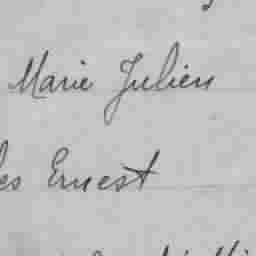 Marie Julien
es Ernest